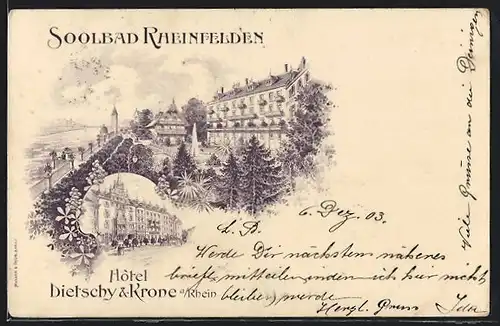 SOOLBAD RHEINFELDEN
6. Dez. 03.
L. B.
Werde Dir nächstens näheres
briefl. mitteilen, indem ich hier nicht
bleiben werde
Herzl. Gruss Ida
Viele Grüsse an die Deinigen
Hôtel
Dietschy & Krone a/Rhein